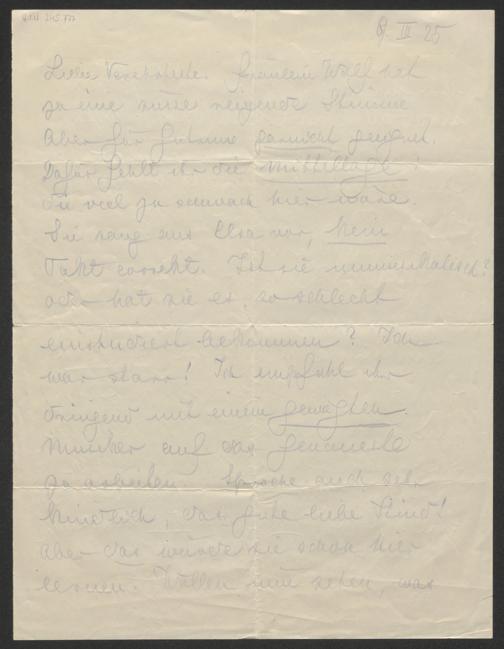 8. III 25
Liebe Verehrteste. Fräulein Wolf hat
ja eine süsse reizende Stimme
Aber für gar nicht geeignet.
Dafür fehlt ihr die Mittellage!
Die viel zu schwach hier wäre.
Sie sang uns Elsa vor, kein
Takt correkt. Ist sie unmusikalisch?
oder hat sie es so schlecht
einstudiert bekommen? Ich
war starr! Ich empfehl ihr
dringend mit einem gewiegten
Musiker auf das Genaueste
zu arbeiten. Sprache auch sehr
kindlich, das gute liebe Kind!
aber das würde sie schon hier
lernen. Wollen nun sehen, was